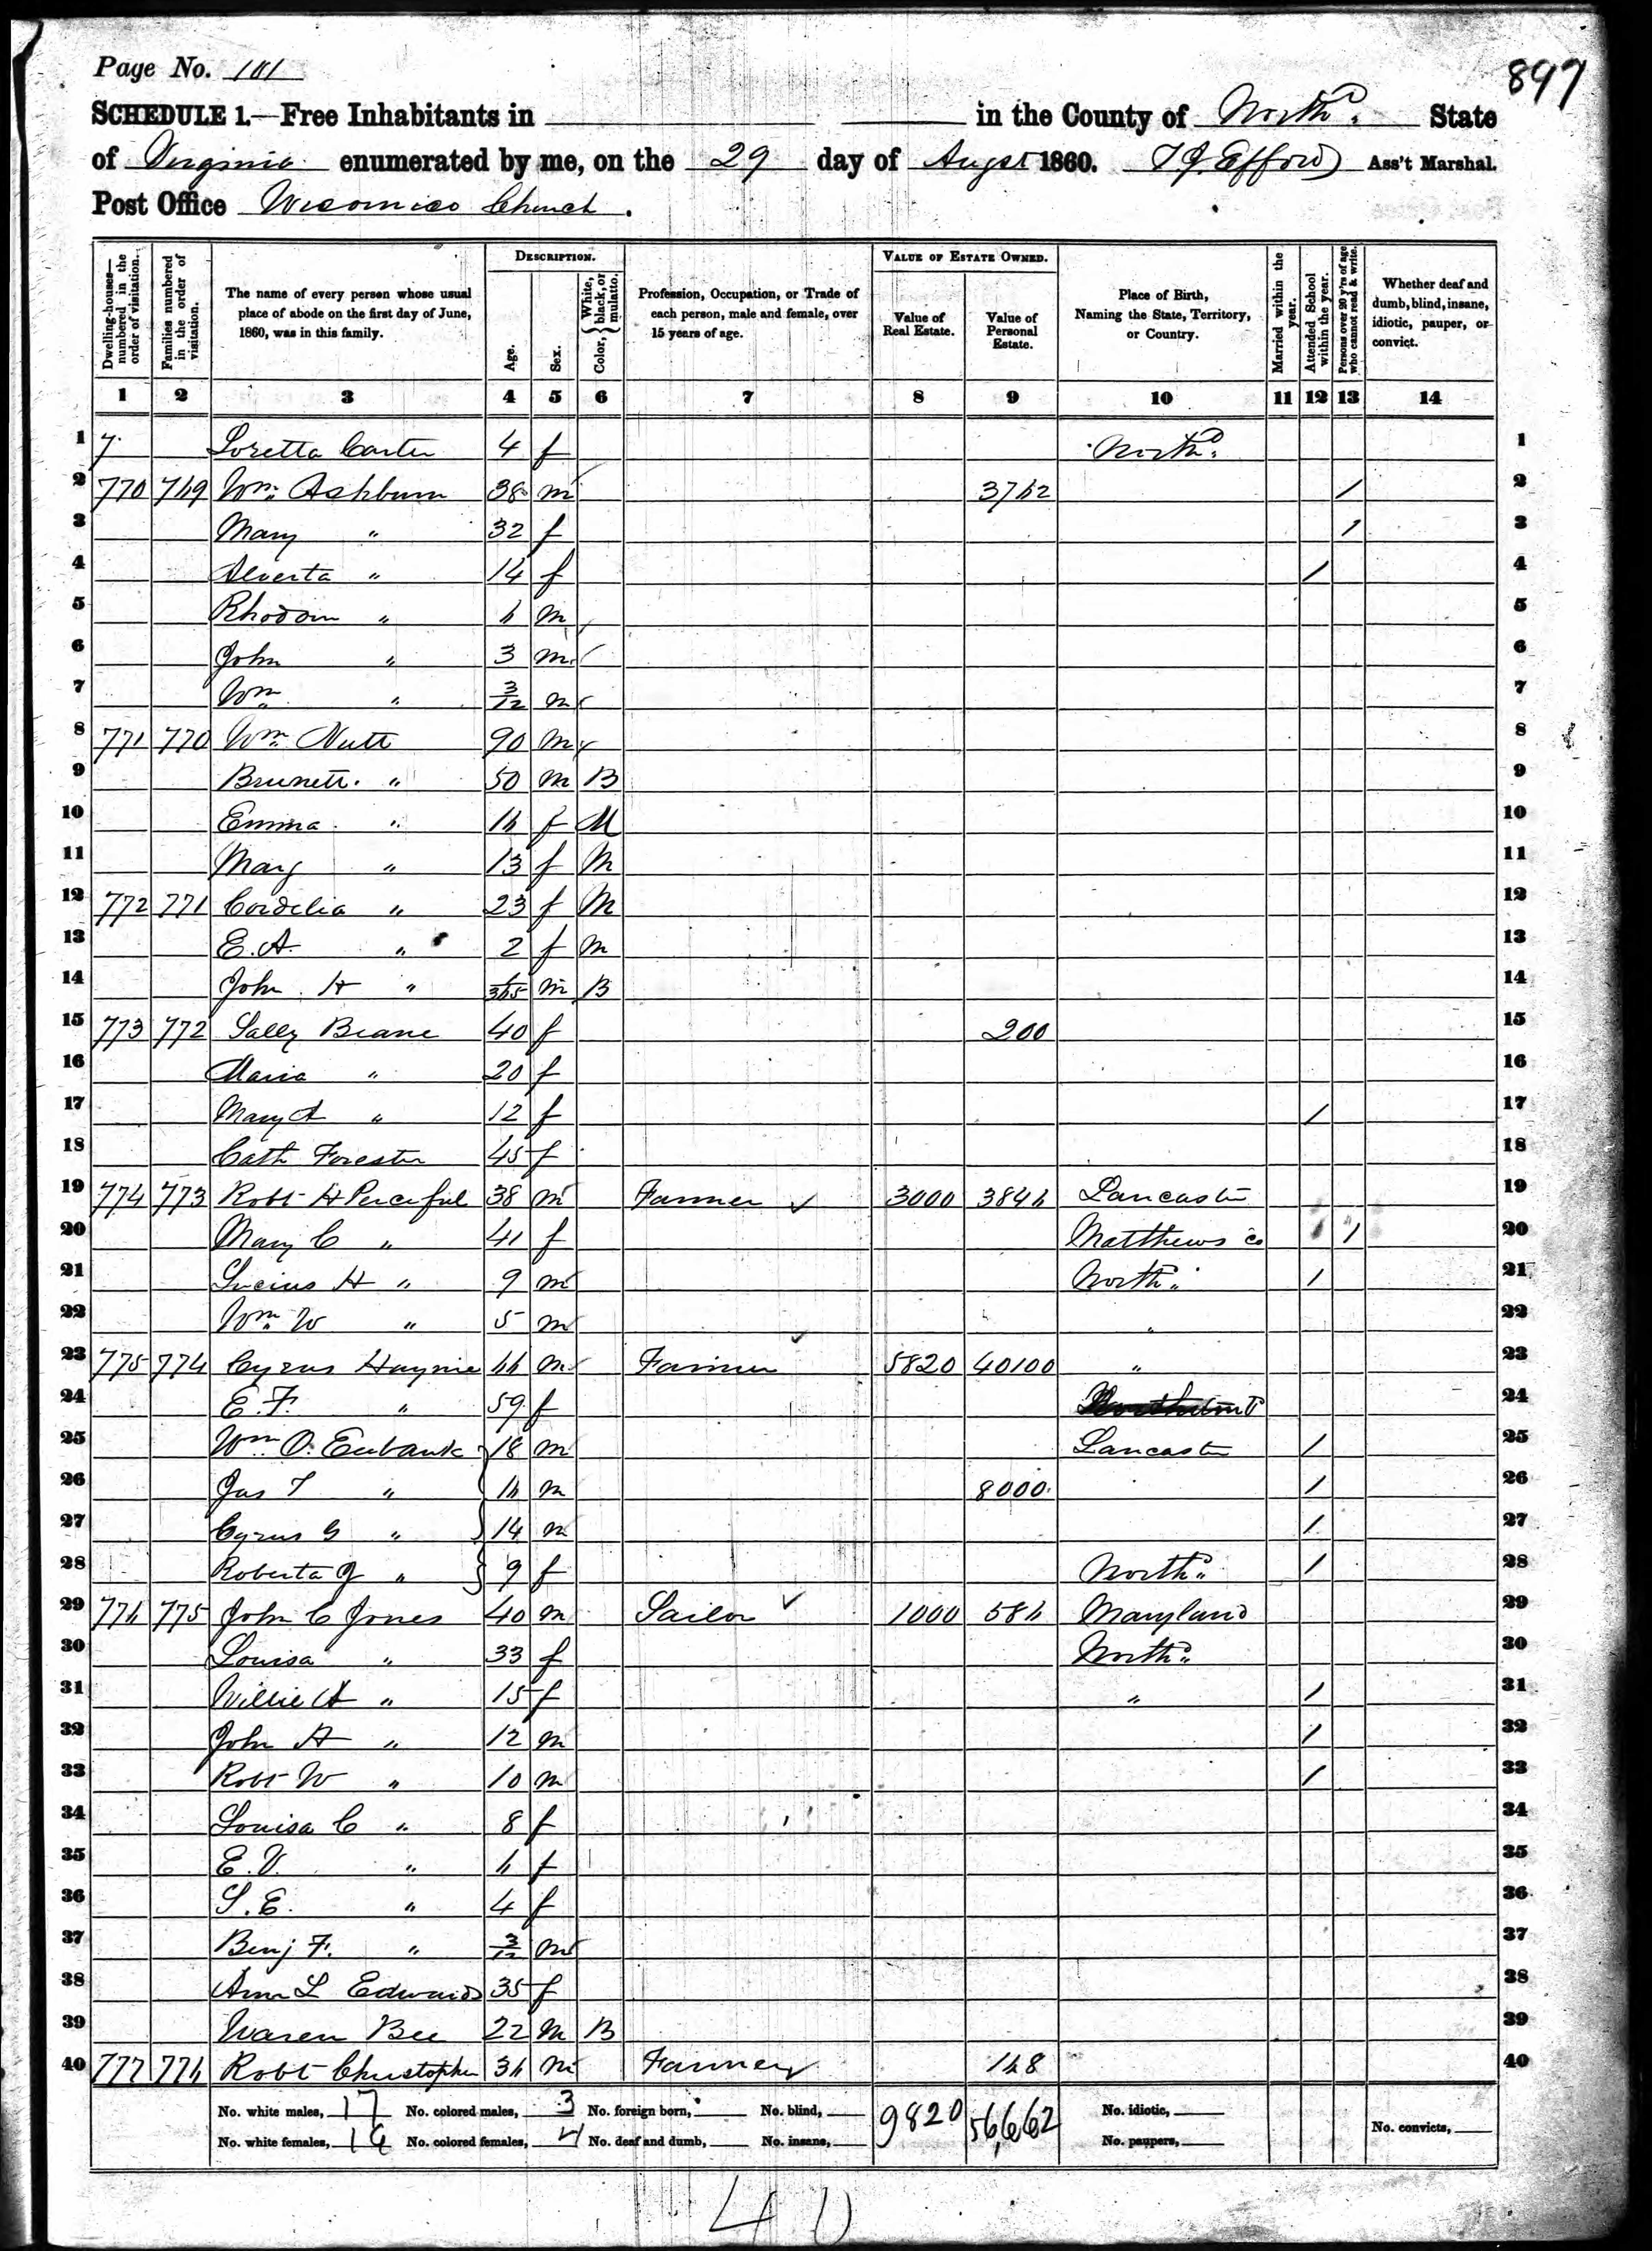 Page No. 101
897
SCHEDULE 1.—Free Inhabitants in in the County of North^d. State
of Virginia enumerated by me, on the 29 day of Augst 1860. T J. Efford Ass't Marshal.
Post Office Wicomico Church.
Dwelling-houses—numbered in the order of visitation. Families numbered in the order of visitation. The name of every person whose usual place of abode on the first day of June, 1860, was in this family. DESCRIPTION. Age. Sex. Color, {White, black, or mulatto. Profession, Occupation, or Trade of each person, male and female, over 15 years of age. VALUE OF ESTATE OWNED. Value of Real Estate. Value of Personal Estate. Place of Birth, Naming the State, Territory, or Country. Married within the year. Attended School within the year. Persons over 20 y'rs of age who cannot read & write. Whether deaf and dumb, blind, insane, idiotic, pauper, or convict.
1 2 3 4 5 6 7 8 9 10 11 12 13 14
1 7 Loretta Carter 4 f North^d. 1
2 770 769 Wm. Ashburn 38 m 3762 / 2
3 Mary " 32 f / 3
4 Alverta " 14 f / 4
5 Rhodom " 6 m 5
6 John " 3 m 6
7 Wm " 3/12 m 7
8 771 770 Wm. Nutt 90 m 8
9 Brunett. " 50 m B 9
10 Emma " 16 f M 10
11 Mary " 13 f M 11
12 772 771 Cordelia " 23 f M 12
13 E. A. " 2 f M 13
14 John H " /365 m B 14
15 773 772 Sally Beane 40 f 200 15
16 Maria " 20 f 16
17 Mary A " 12 f / 17
18 Cath Forester 45 f 18
19 774 773 Robt H Perciful 38 m Farmer ✓ 3000 3846 Lancaster 19
20 Mary C " 41 f Matthews Co / 20
21 Lucius H " 9 m North^d. / 21
22 Wm W " 5 m " 22
23 775 774 Cyrus Haynie 66 m Farmer ✓ 5820 40100 " 23
24 E. F. " 59 f 24
25 Wm O. Eubank 18 m Lancaster / 25
26 Jas T " 16 m 8000 / 26
27 Cyrus G " 14 m / 27
28 Roberta J " 9 f North^d. / 28
29 776 775 John C Jones 40 m Sailor ✓ 1000 586 Maryland 29
30 Louisa " 33 f North^d. 30
31 Willie A " 15 f " / 31
32 John H " 12 m / 32
33 Robt W " 10 m / 33
34 Louisa C " 8 f 34
35 E. V. " 6 f 35
36 S. E. " 4 f 36
37 Benj F. " 3/12 m 37
38 Ann L Edwards 35 f 38
39 Waren Bee 22 m B 39
40 777 776 Robt Christopher 36 m Farmer ✓ 168 40
No. white males, 17 No. colored males, 3 No. foreign born, No. blind, 9820 56,662 No. idiotic,
No. white females, 16 No. colored females, 4 No. deaf and dumb, No. insane, No. paupers, No. convicts,
40